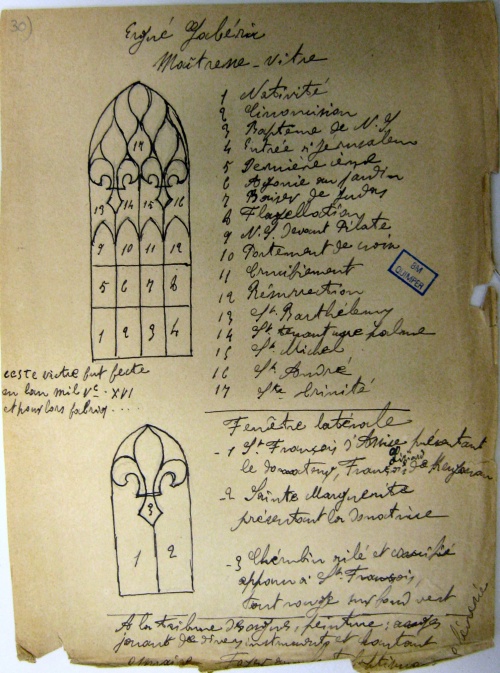 30)
Ergué Gabéric
Maîtresse-Vitre
1 Nativité
2 Circoncision
3 Baptême de N. S
4 Entrée à Jérusalem
5 Dernière cène
6 Agonie au jardin
7 Baiser de Judas
8 Flagellation
9 N. S. devant Pilate
10 Portement de croix
11 Crucifiement
12 Résurrection
13 St. Barthélemy
14 St. tenant une palme
15 St. Michel
16 St. André
17 Ste Trinité
17
13 14 15 16
9 10 11 12
5 6 7 8
1 2 3 4
BM
QUIMPER
ceste victre fut fecte
en lan mil Vc. XVI
et pour lors fabriq....
Fenêtre latérale
- 1 St. François d'Assise présentant
le donateur, François de
- 2 Sainte Marguerite
présentant la donatrice
- 3 Chérubin ailé et crucifié
apparu à St. François,
tout rouge sur fond vert
3
1 2
A la tribune d'orgues, peinture: anges
jouant de divers instruments et chantant